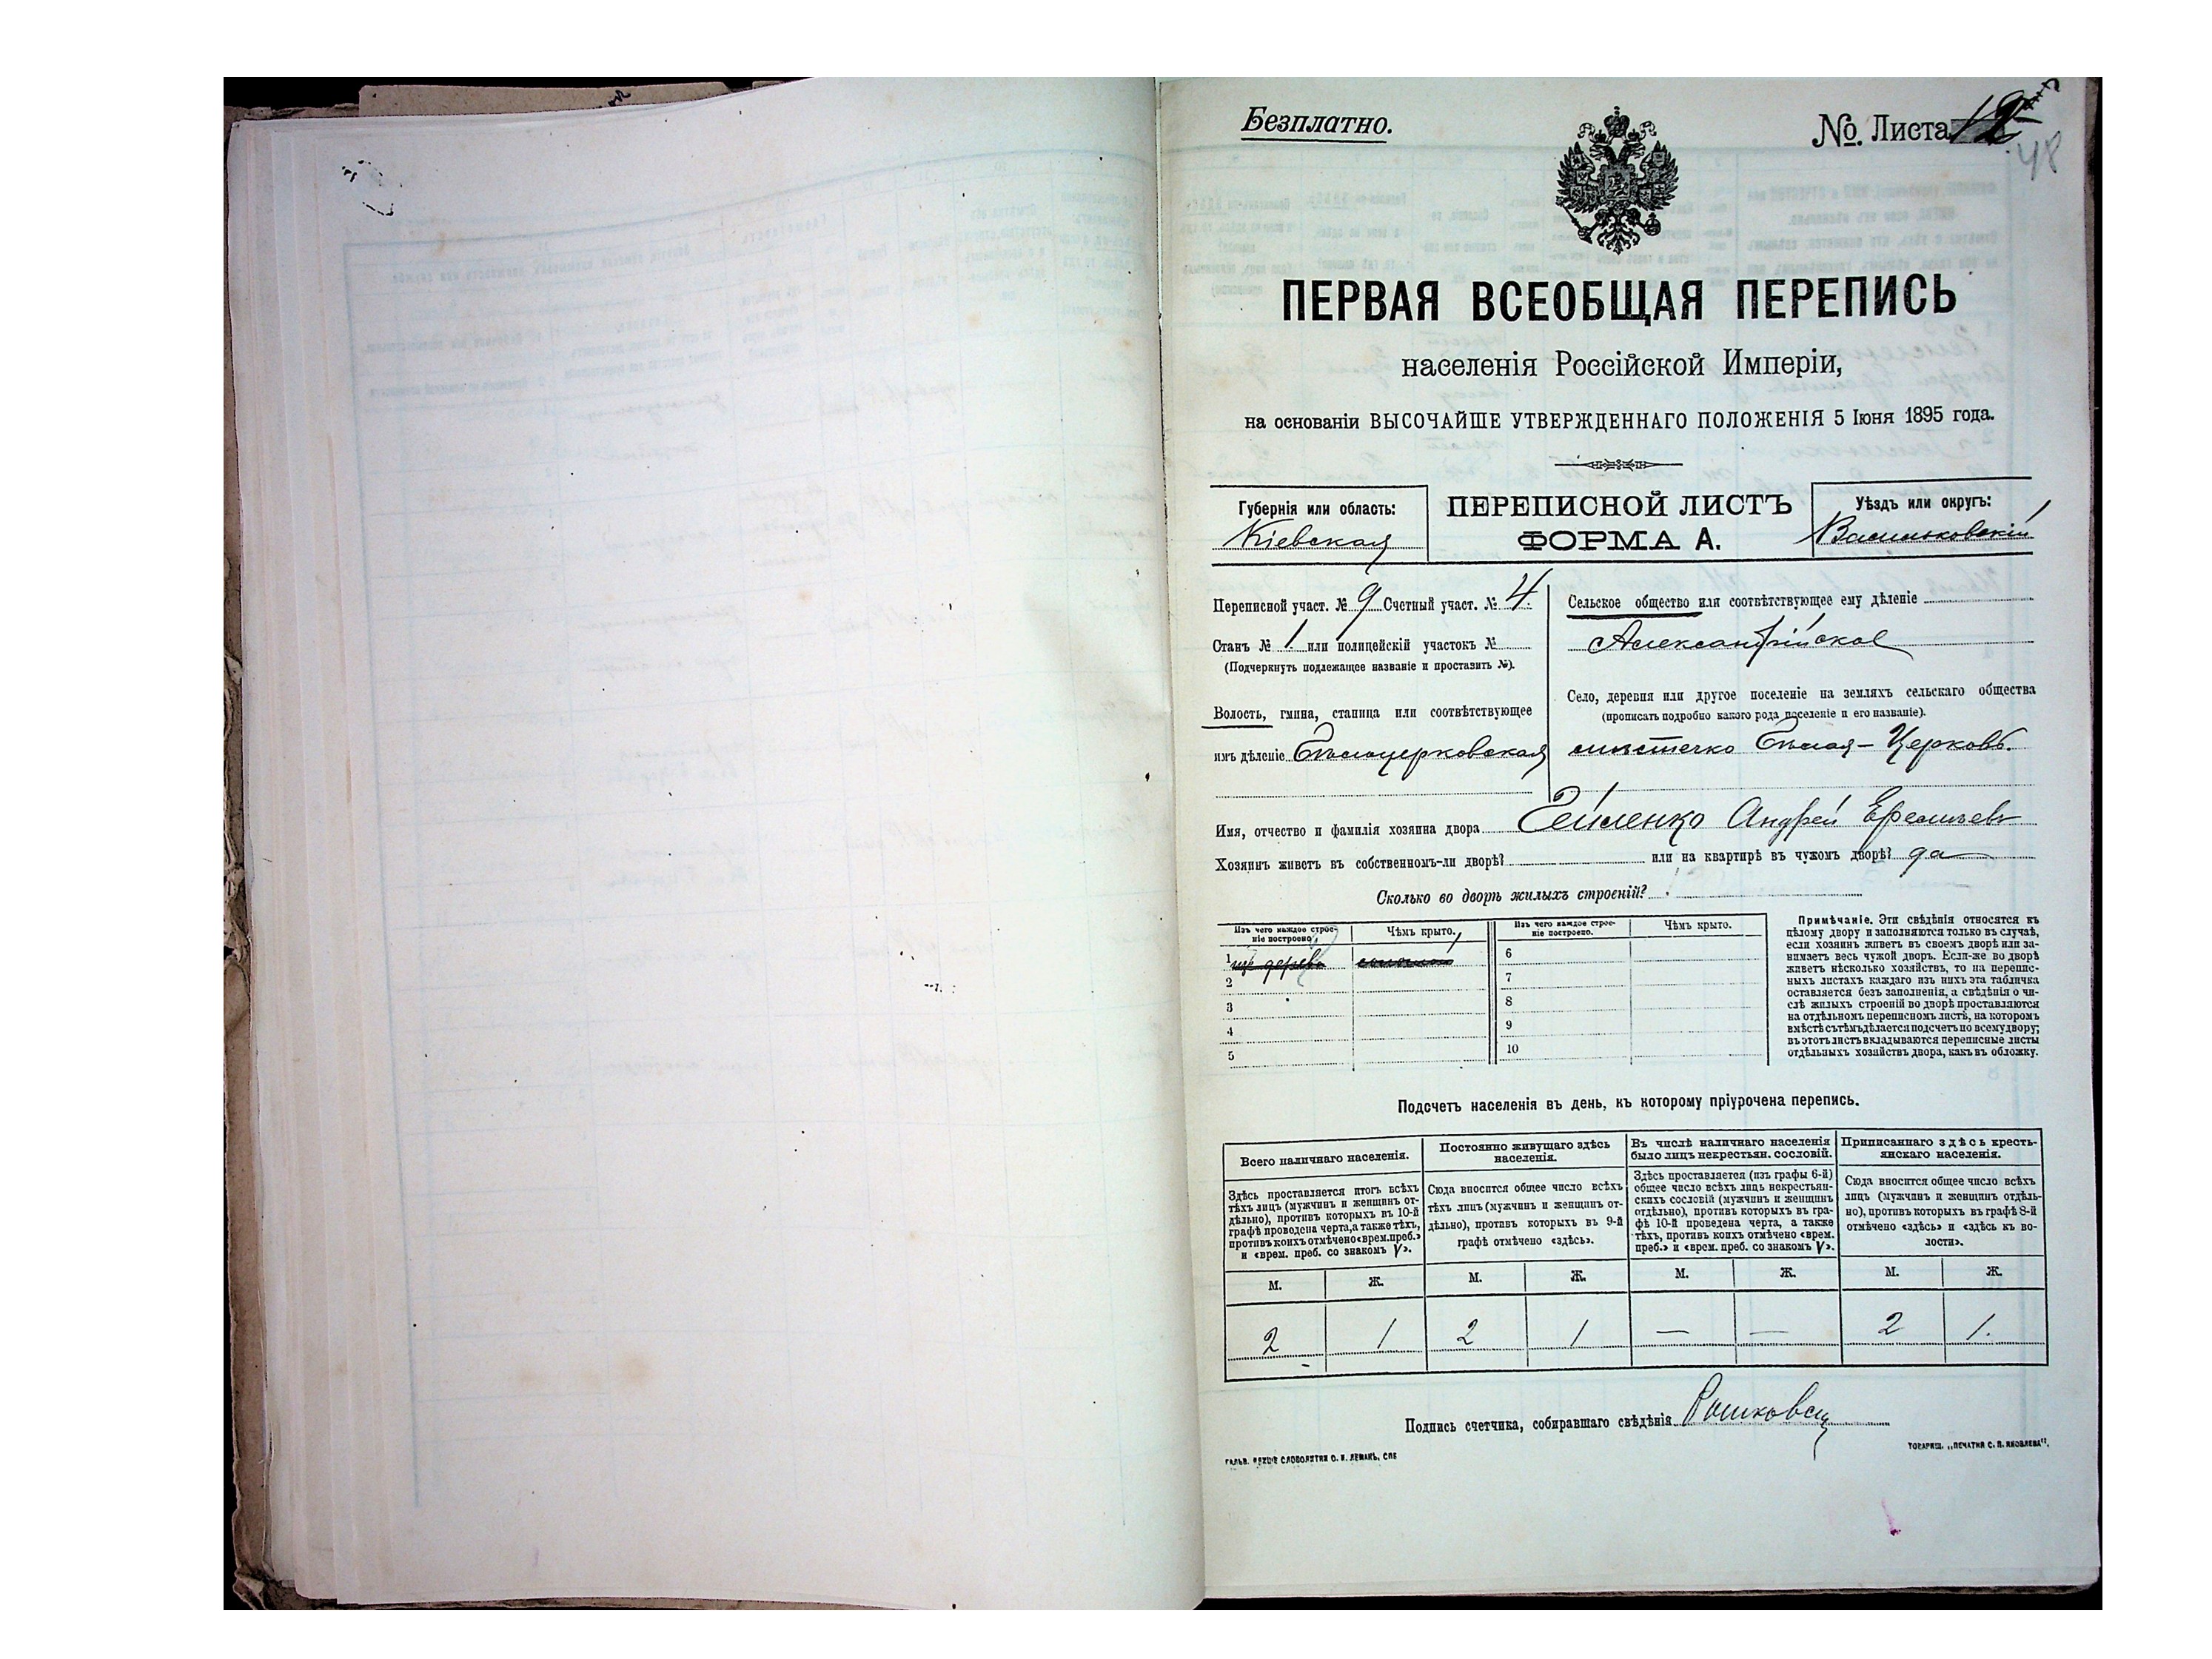 Безплатно.
№ Листа 12
48
ПЕРВАЯ ВСЕОБЩАЯ ПЕРЕПИСЬ
населенія Россійской Имперіи,
на основаніи ВЫСОЧАЙШЕ УТВЕРЖДЕННАГО ПОЛОЖЕНІЯ 5 Іюня 1895 года.
Губернія или область:
Кіевская
ПЕРЕПИСНОЙ ЛИСТЪ
ФОРМА А.
Уѣздъ или округъ:
Васильковскій
Переписной участ. № 9 Счетный участ. № 4.
Станъ № 1 или полицейскій участокъ №
(Подчеркнуть подлежащее названіе и проставить №).
Волость, гмина, станица или соотвѣтствующее
имъ дѣленіе Бѣлоцерковская
Сельское общество или соотвѣтствующее ему дѣленіе
Александрійское
Село, деревня или другое поселеніе на земляхъ сельскаго общества
(прописать подробно какого рода поселеніе и его названіе).
мѣстечко Бѣлая-Церковь.
Имя, отчество и фамилія хозяина двора Андрей
Хозяинъ живетъ въ собственномъ-ли дворѣ? или на квартирѣ въ чужомъ дворѣ? да
Сколько во дворѣ жилыхъ строеній?
Изъ чего каждое строе-
ніе построено.
Чѣмъ крыто.
Изъ чего каждое строе-
ніе построено.
Чѣмъ крыто.
1 изъ дерева соломой
2
3
4
5
6
7
8
9
10
Примѣчаніе. Эти свѣдѣнія относятся къ
цѣлому двору и заполняются только въ случаѣ,
если хозяинъ живетъ въ своемъ дворѣ или за-
нимаетъ весь чужой дворъ. Если-же во дворѣ
живетъ нѣсколько хозяйствъ, то на перепис-
ныхъ листахъ каждаго изъ нихъ эта табличка
оставляется безъ заполненія, а свѣдѣнія о чи-
слѣ жилыхъ строеній во дворѣ проставляются
на отдѣльномъ переписномъ листѣ, на которомъ
вмѣстѣ съ тѣмъ дѣлается подсчетъ по всему двору;
въ этотъ листъ вкладываются переписные листы
отдѣльныхъ хозяйствъ двора, какъ въ обложку.
Подсчетъ населенія въ день, къ которому пріурочена перепись.
Всего наличнаго населенія.
Здѣсь проставляется итогъ всѣхъ
тѣхъ лицъ (мужчинъ и женщинъ от-
дѣльно), противъ которыхъ въ 10-й
графѣ проведена черта, а также тѣхъ,
противъ коихъ отмѣчено «врем. преб.»
и «врем. преб. со знакомъ V».
Постоянно живущаго здѣсь
населенія.
Сюда вносится общее число всѣхъ
тѣхъ лицъ (мужчинъ и женщинъ от-
дѣльно), противъ которыхъ въ 9-й
графѣ отмѣчено «здѣсь».
Въ числѣ наличнаго населенія
было лицъ некрестьян. сословій.
Здѣсь проставляется (изъ графы 6-й)
общее число всѣхъ лицъ некрестьян-
скихъ сословій (мужчинъ и женщинъ
отдѣльно), противъ которыхъ въ гра-
фѣ 10-й проведена черта, а также
тѣхъ, противъ коихъ отмѣчено «врем.
преб.» и «врем. преб. со знакомъ V».
Приписаннаго здѣсь кресть-
янскаго населенія.
Сюда вносится общее число всѣхъ
лицъ (мужчинъ и женщинъ отдѣль-
но), противъ которыхъ въ графѣ 8-й
отмѣчено «здѣсь» и «здѣсь къ во-
лости».
М. Ж. М. Ж. М. Ж. М. Ж.
2 1 2 1 — — 2 1.
Подпись счетчика, собиравшаго свѣдѣнія
ТОВАРИЩ. „ПЕЧАТНЯ С. П. ЯКОВЛЕВА“.
СЛОВОЛИТНИ О. И. ЛЕМАНЪ, СПБ